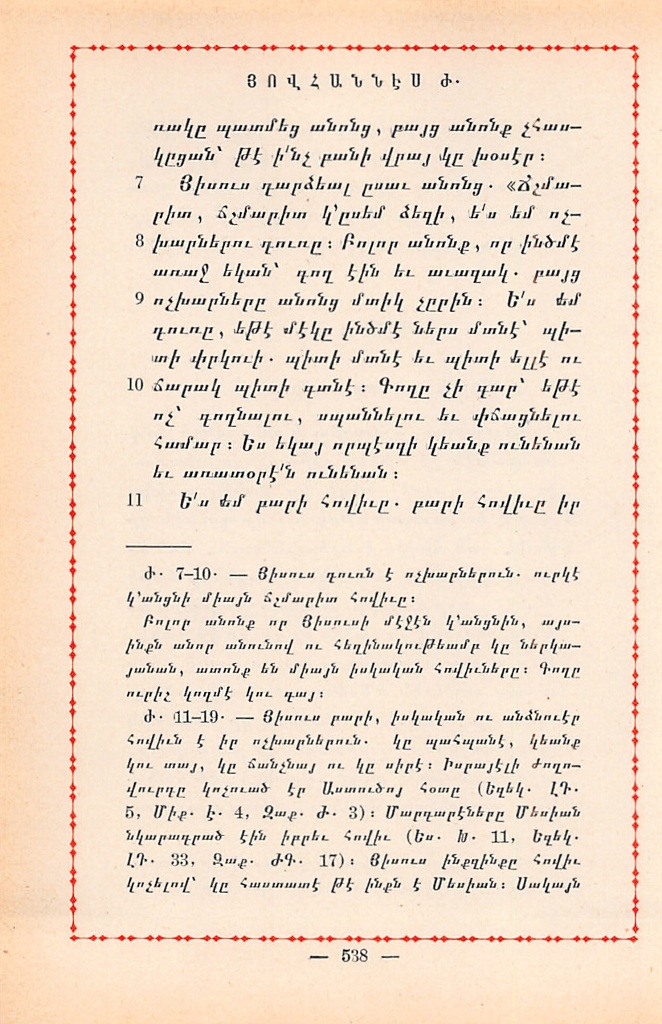 ՅՈՎՀԱՆՆԷՍ Ժ.
ռակը պատմեց անոնց, բայց անոնք չհաս–
կըցան՝ թէ ի՛նչ բանի վրայ կը խօսէր։
7 Յիսուս դարձեալ ըսաւ անոնց. «Ճշմա–
րիտ, ճշմարիտ կ՚ըսեմ ձեզի, ե՛ս եմ ոչ–
8 խարներու դուռը։ Բոլոր անոնք, որ ինծմէ
առաջ եկան՝ գող էին եւ աւազակ. բայց
9 ոչխարները անոնց մտիկ չըրին։ Ե՛ս եմ
դուռը, եթէ մէկը ինծմէ ներս մտնէ՝ պի–
տի փրկուի. պիտի մտնէ եւ պիտի ելլէ ու
10 ճարակ պիտի գտնէ։ Գողը չի գար՝ եթէ
ոչ՝ գողնալու, սպաննելու եւ փճացնելու
համար։ Ես եկայ որպէսզի կեանք ունենան
եւ առատօրէ՛ն ունենան։
11 Ե՛ս եմ բարի հովիւը. բարի հովիւը իր
Ժ. 7–10. — Յիսուս դուռն է ոչխարներուն. ուրկէ
կ՚անցնի միայն ճշմարիտ հովիւը։
Բոլոր անոնք որ Յիսուսի մէջէն կ՚անցնին, այս–
ինքն անոր անունով ու հեղինակութեամբ կը ներկա–
յանան, ատոնք են միայն իսկական հովիւները։ Գողը
ուրիշ կողմէ կու գայ։
Ժ. 11–19. — Յիսուս բարի, իսկական ու անձնուէր
հովիւն է իր ոչխարներուն. կը պահպանէ, կեանք
կու տայ, կը ճանչնայ ու կը սիրէ։ Իսրայէլի ժողո–
վուրդը կոչուած էր Աստուծոյ հօտը (Եզեկ. ԼԴ.
5, Միք. Է. 4, Զաք. Ժ. 3)։ Մարգարէները Մեսիան
նկարագրած էին իբրեւ հովիւ (Ես. Խ. 11, Եզեկ.
ԼԴ. 33, Զաք. ԺԳ. 17)։ Յիսուս ինքզինքը հովիւ
կոչելով՝ կը հաստատէ թէ ինքն է Մեսիան։ Սակայն
— 538 —